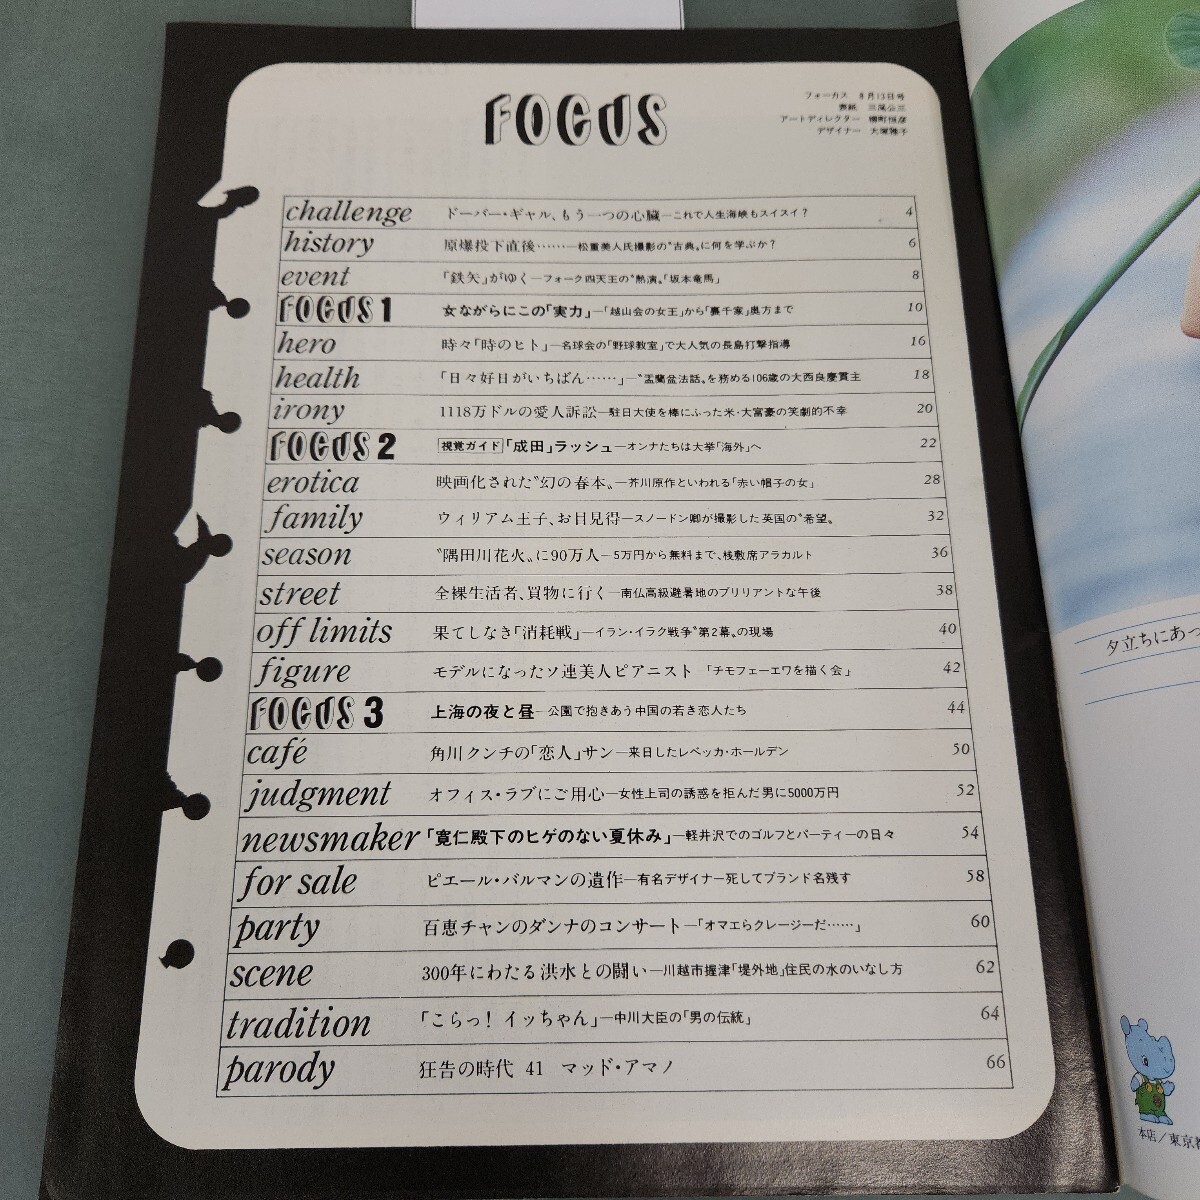 FOCUS
フォーカス 8月13日号
表紙 三尾公三
アートディレクター 柳町恒彦
デザイナー 大塚雅子
challenge ドーバー・ギャル、もう一つの心臓—これで人生海峡もスイスイ? 4
history 原爆投下直後……—松重美人氏撮影の〝古典〟に何を学ぶか? 6
event 「鉄矢」がゆく—フォーク四天王の〝熱演〟「坂本竜馬」 8
FOCUS 1 女ながらにこの「実力」—「越山会の女王」から「裏千家」奥方まで 10
hero 時々「時のヒト」—名球会の「野球教室」で大人気の長島打撃指導 16
health 「日々好日がいちばん……」—〝盂蘭盆法話〟を務める106歳の大西良慶貫主 18
irony 1118万ドルの愛人訴訟—駐日大使を棒にふった米・大富豪の笑劇的不幸 20
FOCUS 2 視覚ガイド 「成田」ラッシュ—オンナたちは大挙「海外」へ 22
erotica 映画化された〝幻の春本〟—芥川原作といわれる「赤い帽子の女」 28
family ウィリアム王子、お目見得—スノードン卿が撮影した英国の〝希望〟 32
season 〝隅田川花火〟に90万人—5万円から無料まで、桟敷席アラカルト 36
street 全裸生活者、買物に行く—南仏高級避暑地のブリリアントな午後 38
off limits 果てしなき「消耗戦」—イラン・イラク戦争〝第2幕〟の現場 40
figure モデルになったソ連美人ピアニスト 「チモフェーエワを描く会」 42
FOCUS 3 上海の夜と昼—公園で抱きあう中国の若き恋人たち 44
café 角川クンチの「恋人」サン—来日したレベッカ・ホールデン 50
judgment オフィス・ラブにご用心—女性上司の誘惑を拒んだ男に5000万円 52
newsmaker 「寛仁殿下のヒゲのない夏休み」—軽井沢でのゴルフとパーティーの日々 54
for sale ピエール・バルマンの遺作—有名デザイナー死してブランド名残す 58
party 百恵チャンのダンナのコンサート—「オマエらクレージーだ……」 60
scene 300年にわたる洪水との闘い—川越市握津「堤外地」住民の水のいなし方 62
tradition 「こらっ! イッちゃん」—中川大臣の「男の伝統」 64
parody 狂告の時代 41 マッド・アマノ 66
夕立ちにあっ
本店/東京都